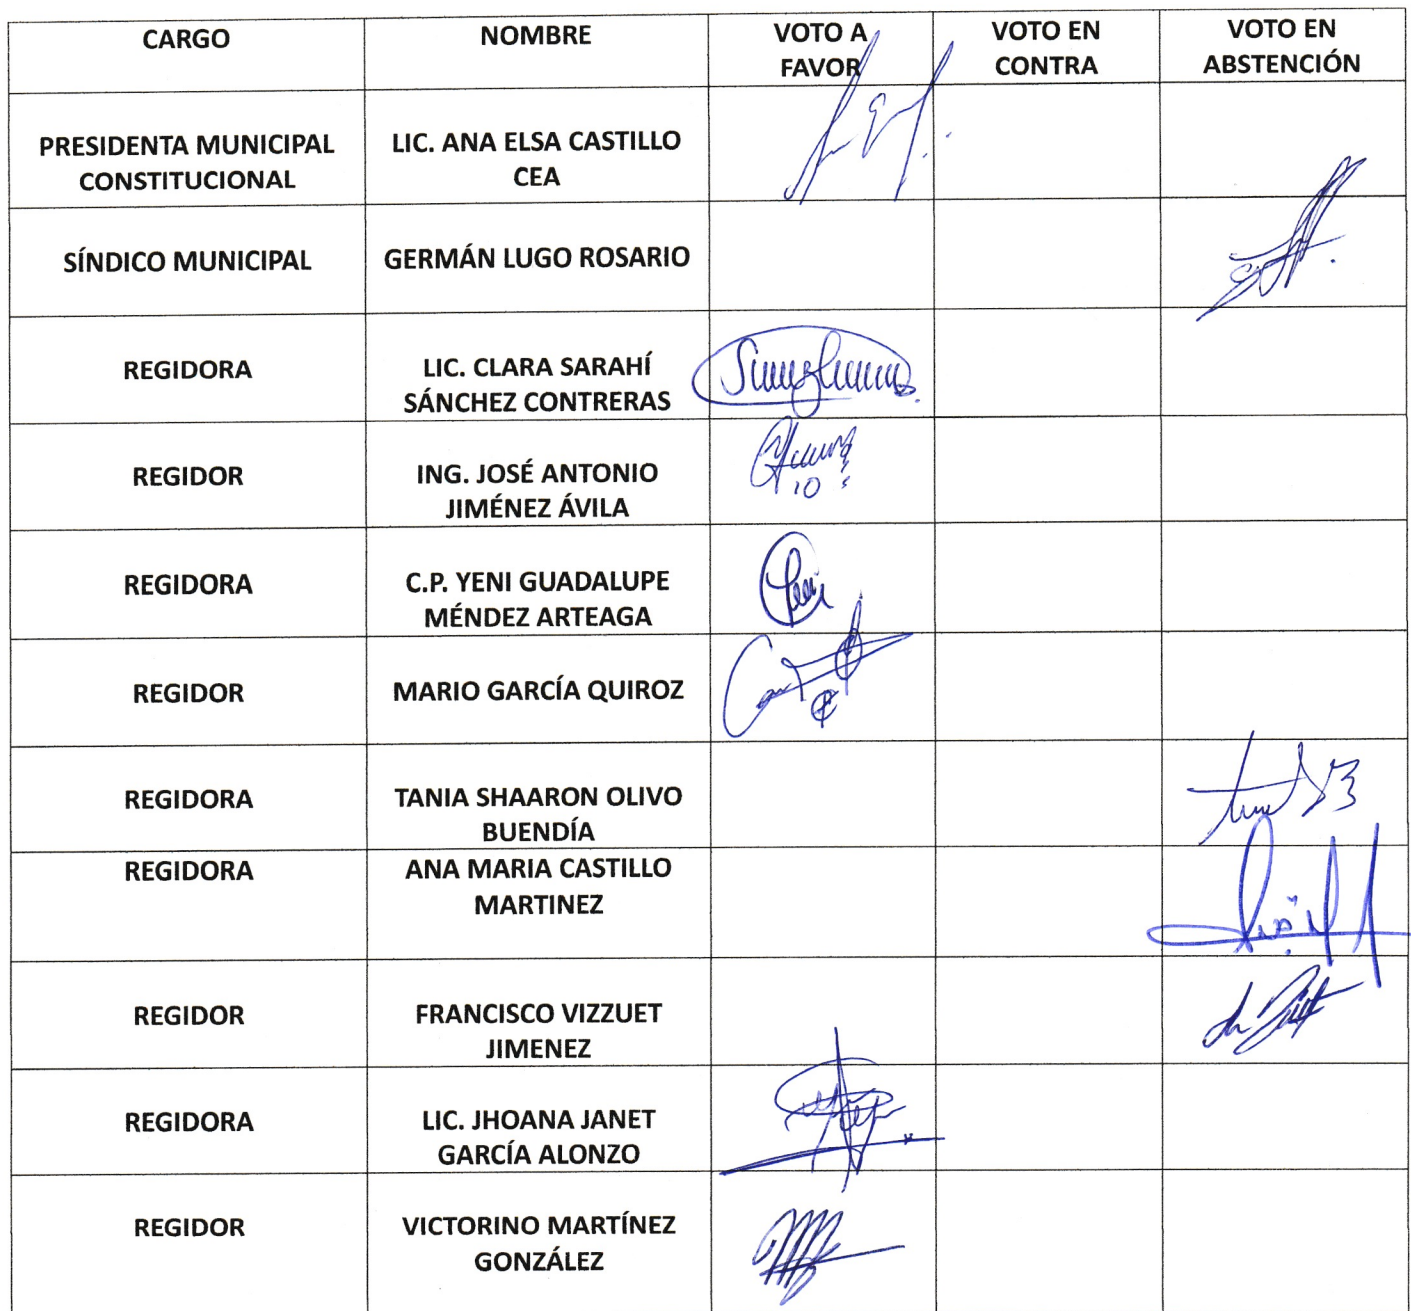 CARGO
NOMBRE
VOTO A
FAVOR
VOTO EN
CONTRA
VOTO EN
ABSTENCIÓN
PRESIDENTA MUNICIPAL
CONSTITUCIONAL
LIC. ANA ELSA CASTILLO
CEA
SÍNDICO MUNICIPAL
GERMÁN LUGO ROSARIO
REGIDORA
LIC. CLARA SARAHÍ
SÁNCHEZ CONTRERAS
REGIDOR
ING. JOSÉ ANTONIO
JIMÉNEZ ÁVILA
REGIDORA
C.P. YENI GUADALUPE
MÉNDEZ ARTEAGA
REGIDOR
MARIO GARCÍA QUIROZ
REGIDORA
TANIA SHAARON OLIVO
BUENDÍA
REGIDORA
ANA MARIA CASTILLO
MARTINEZ
REGIDOR
FRANCISCO VIZZUET
JIMENEZ
REGIDORA
LIC. JHOANA JANET
GARCÍA ALONZO
REGIDOR
VICTORINO MARTÍNEZ
GONZÁLEZ